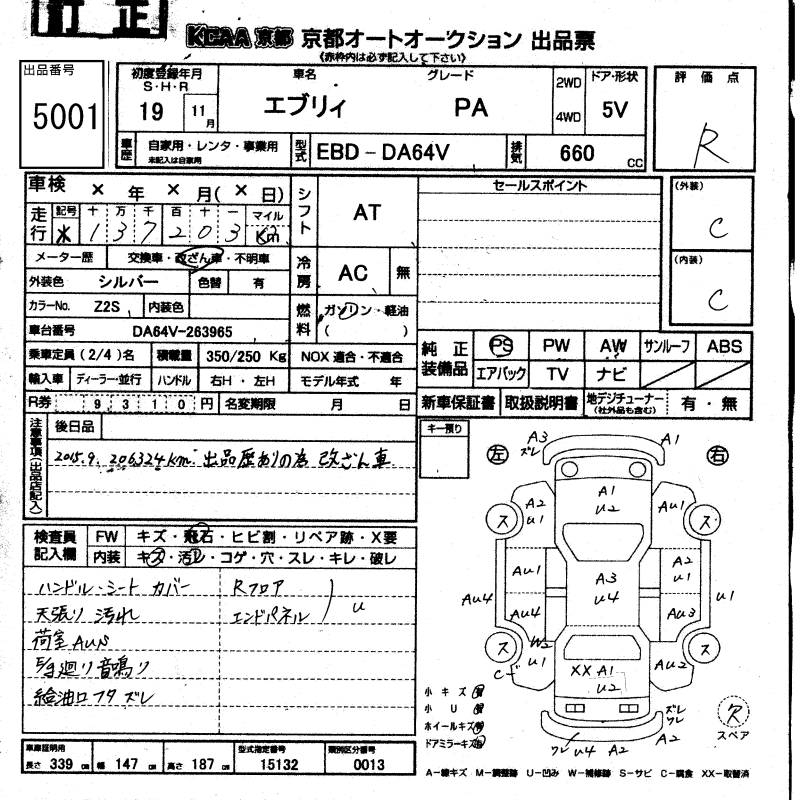 訂正
KCAA 京都 京都オートオークション 出品票
《赤枠内は必ず記入して下さい》
出品番号
5001
初度登録年月
S・H・R
19 11月
車名 グレード
エブリィ PA
2WD
4WD
ドア・形状
5V
車歴 自家用・レンタ・事業用
未記入は自家用
型式 EBD-DA64V
排気 660 CC
評価点
R
車検 × 年 × 月( × 日)
走行 記号 十 万 千 百 十 一 マイル
* 1 3 7 2 0 3 Km
メーター歴 交換車・改ざん車・不明車
外装色 シルバー 色替 有
カラーNo. Z2S 内装色
車台番号 DA64V-263965
乗車定員 (2/4)名 積載量 350/250 Kg NOX 適合・不適合
輸入車 ディーラー・並行 ハンドル 右H・左H モデル年式 年
R券 9310円 名変期限 月 日
シフト AT
冷房 AC 無
燃料 ガソリン・軽油
( )
セールスポイント
(外装)
C
(内装)
C
純正装備品 PS PW AW サンルーフ ABS
エアバック TV ナビ
新車保証書 取扱説明書 地デジチューナー(社外品も含む) 有・無
注意事項(出品店記入)
後日品
2015.9. 206324km 出品歴ありの為 改ざん車
検査員記入欄 FW キズ・飛石・ヒビ割・リペア跡・X要
内装 キズ・汚レ・コゲ・穴・スレ・キレ・破レ
ハンドル・シート カバー
天張り 汚れ
荷室AUS
給油口フタ ズレ
Rフロア
エンドパネル
U
車庫証明用
長さ 339 cm 幅 147 cm 高さ 187 cm
型式指定番号
15132
類別区分番号
0013
キー預り
左 右
A3
ズレ
A1
A1
U2
A2
U1
AU1
ス ス
AU1
AU4
AU4
A3
U4
A2
U1
AU3
U1
W2
U1
ス ス
XX A1
U2
AU2
小キズ
小 U
ホイールキズ
ドアミラーキズ
ワレ U4 A2
ズレ
ワレ
A2
スペア
A-線キズ M-調整跡 U-凹み W-補修跡 S-サビ C-腐食 XX-取替済